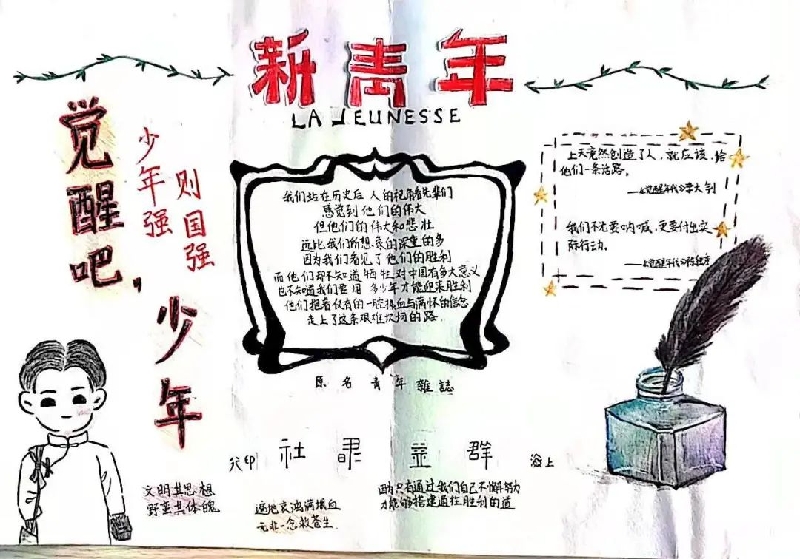 新青年
LA JEUNESSE
觉醒吧，少年
少年强
则国强
我们站在历史后人的视角看先辈们
感觉到他们的伟大
但他们的伟大和悲壮
远比我们所想象的深重的多
因为我们看见了他们的胜利
而他们却不知道牺牲对中国有多大意义
也不知道我们要用多少年才能迎来胜利
他们抱着仅有的一腔热血与满怀的信念
走上了这条艰难
的路
上天竟然创造了人，就应该，给
他们一条活路。
我们不光要呐喊，更要付出实
际行动。
原名青年雜誌
群益
社
印
上
文明其思想
野蛮其体魄
遍地哀
满城血
无非一念救苍生
只有通过我们自己不懈努力
才能够搭建通往胜利的道